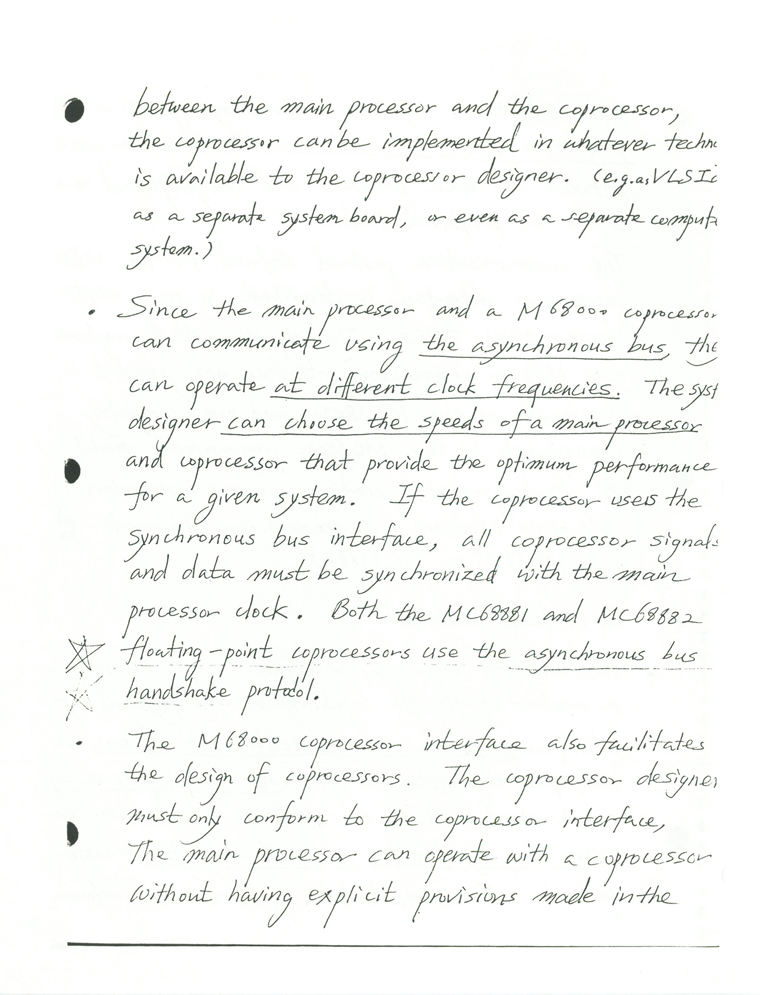 between the main processor and the coprocessor,
the coprocessor can be implemented in whatever techn
is available to the coprocessor designer. (e.g. as VLSI
as a separate system board, or even as a separate compute
system.)
• Since the main processor and a M68000 coprocessor
can communicate using the asynchronous bus, they
can operate at different clock frequencies. The syst
designer can choose the speeds of a main processor
and coprocessor that provide the optimum performance
for a given system. If the coprocessor uses the
synchronous bus interface, all coprocessor signals
and data must be synchronized with the main
processor clock. Both the MC68881 and MC68882
floating-point coprocessors use the asynchronous bus
handshake protocol.
• The M68000 coprocessor interface also facilitates
the design of coprocessors. The coprocessor designer
must only conform to the coprocessor interface,
The main processor can operate with a coprocessor
without having explicit provisions made in the